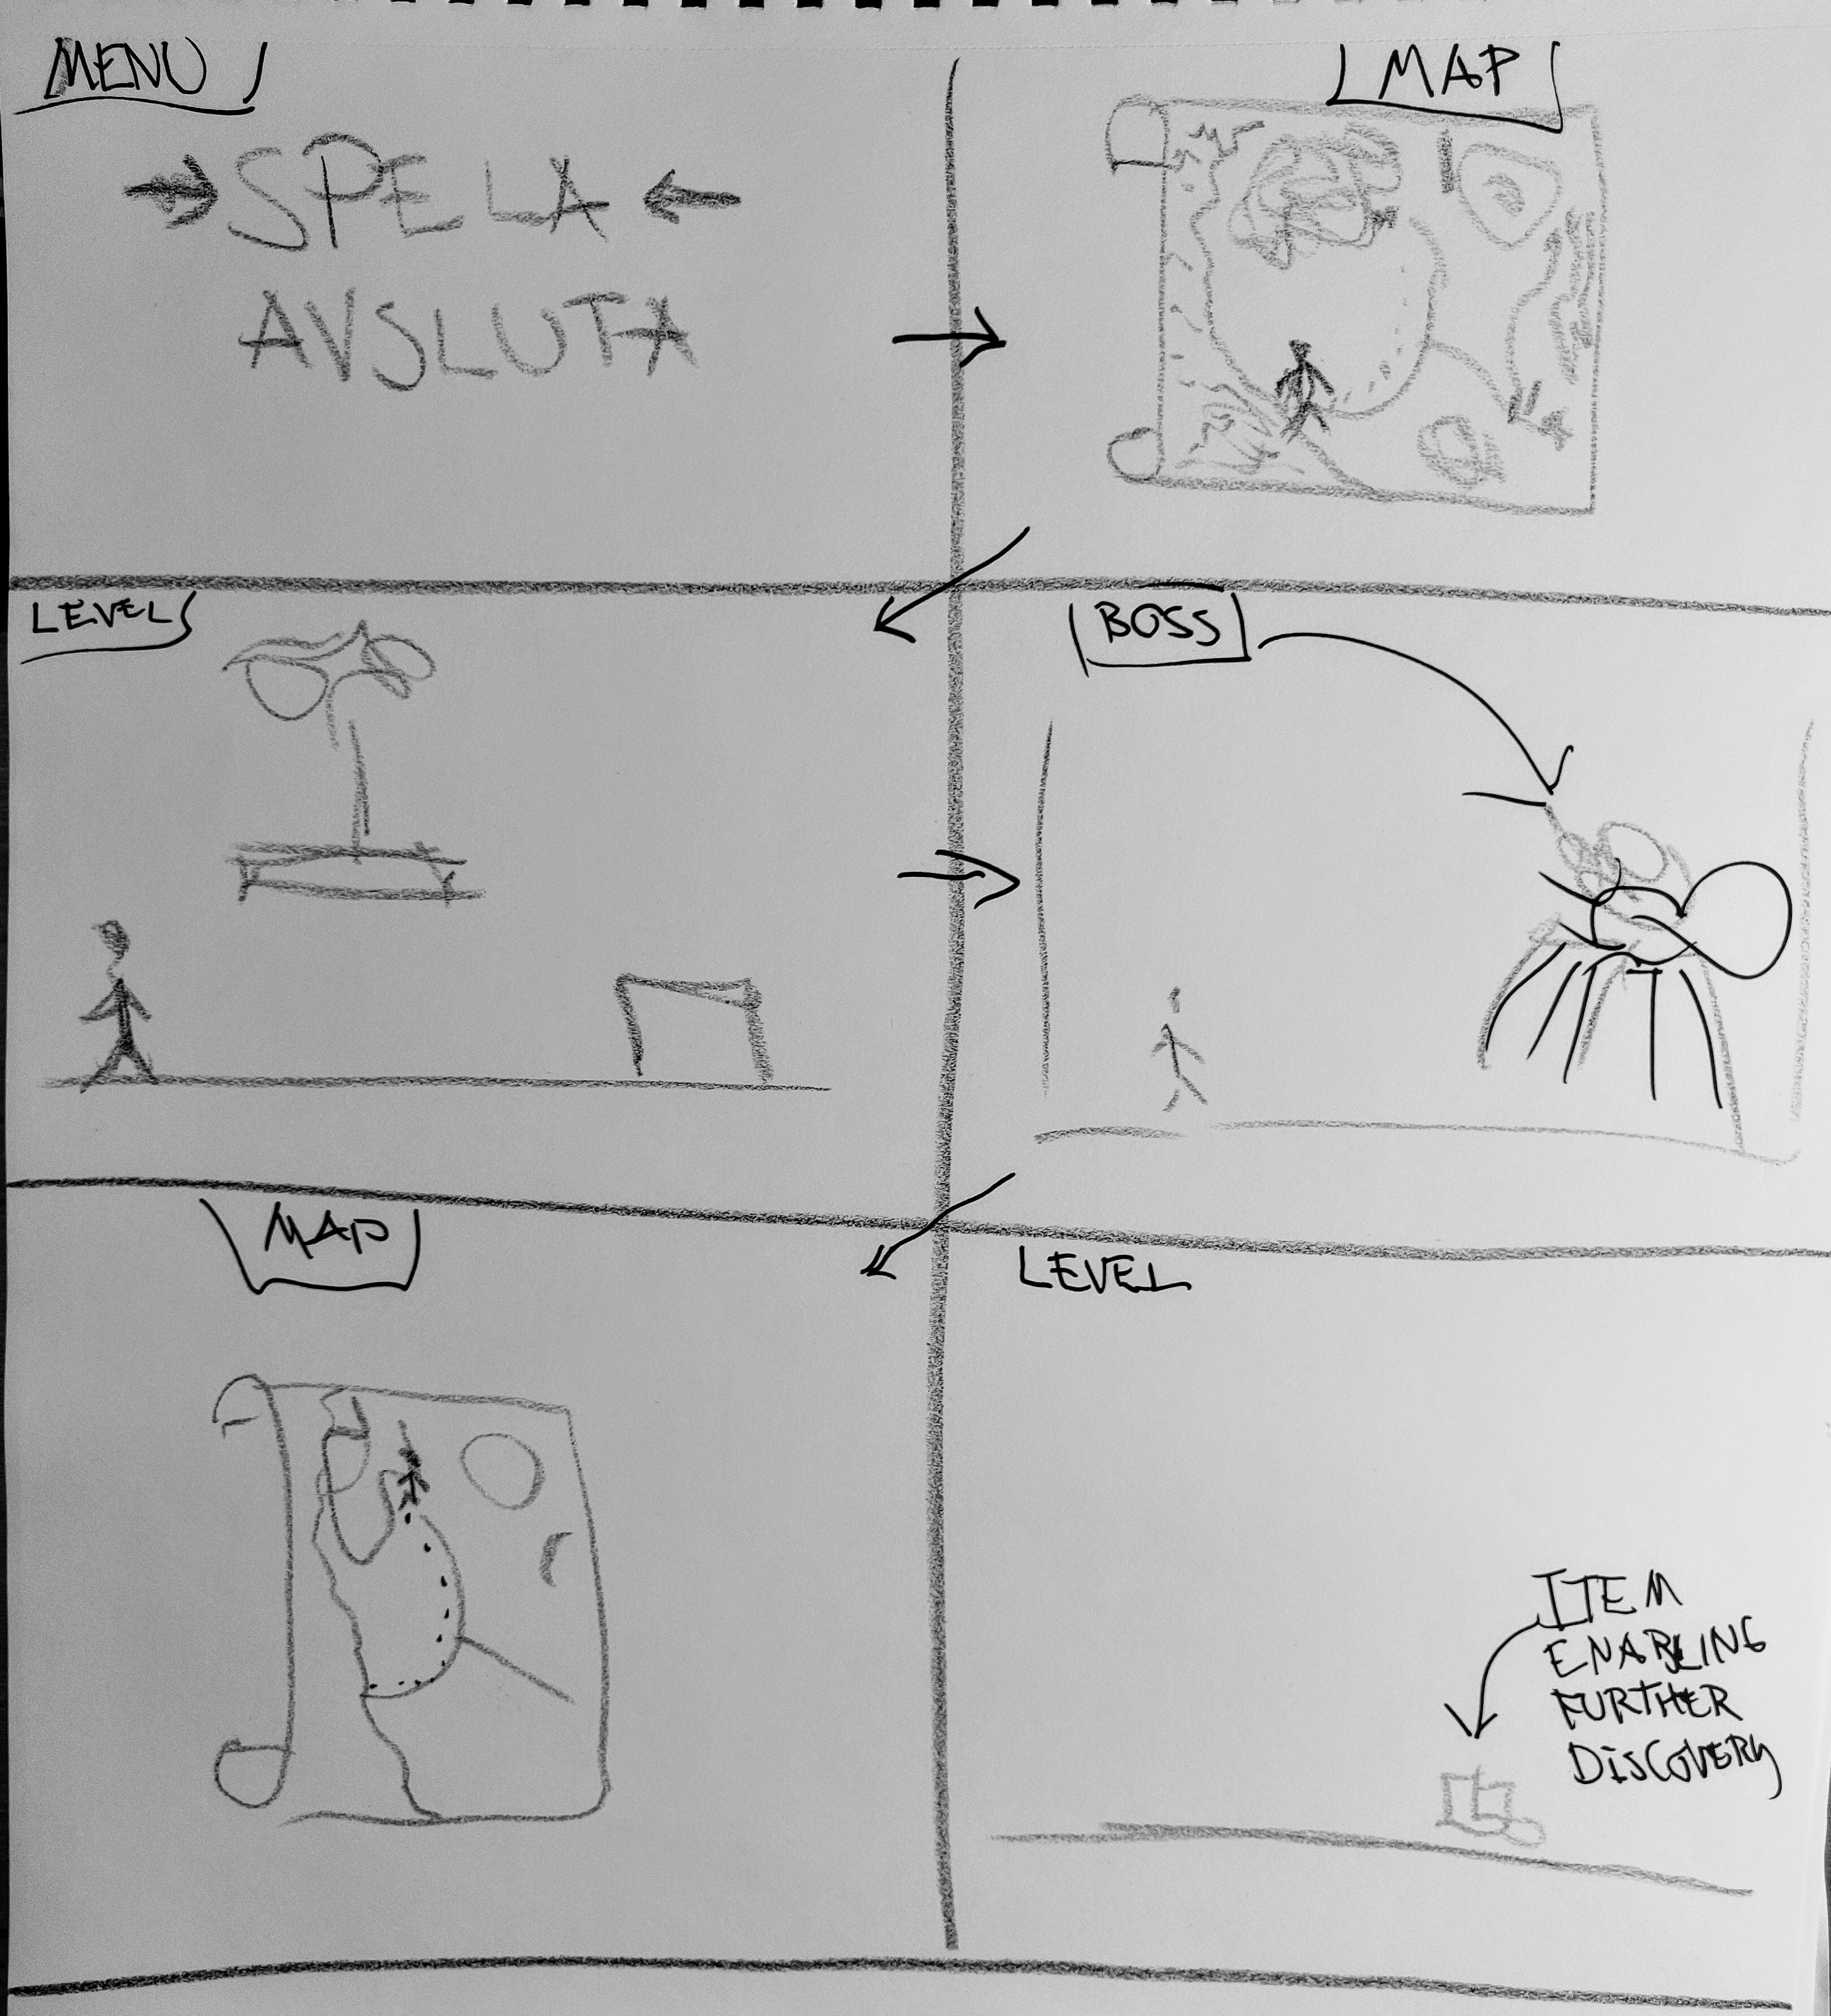 MENU
SPELA
AVSLUTA
MAP
LEVEL
BOSS
MAP
LEVEL
ITEM
ENABLING
FURTHER
DISCOVERY